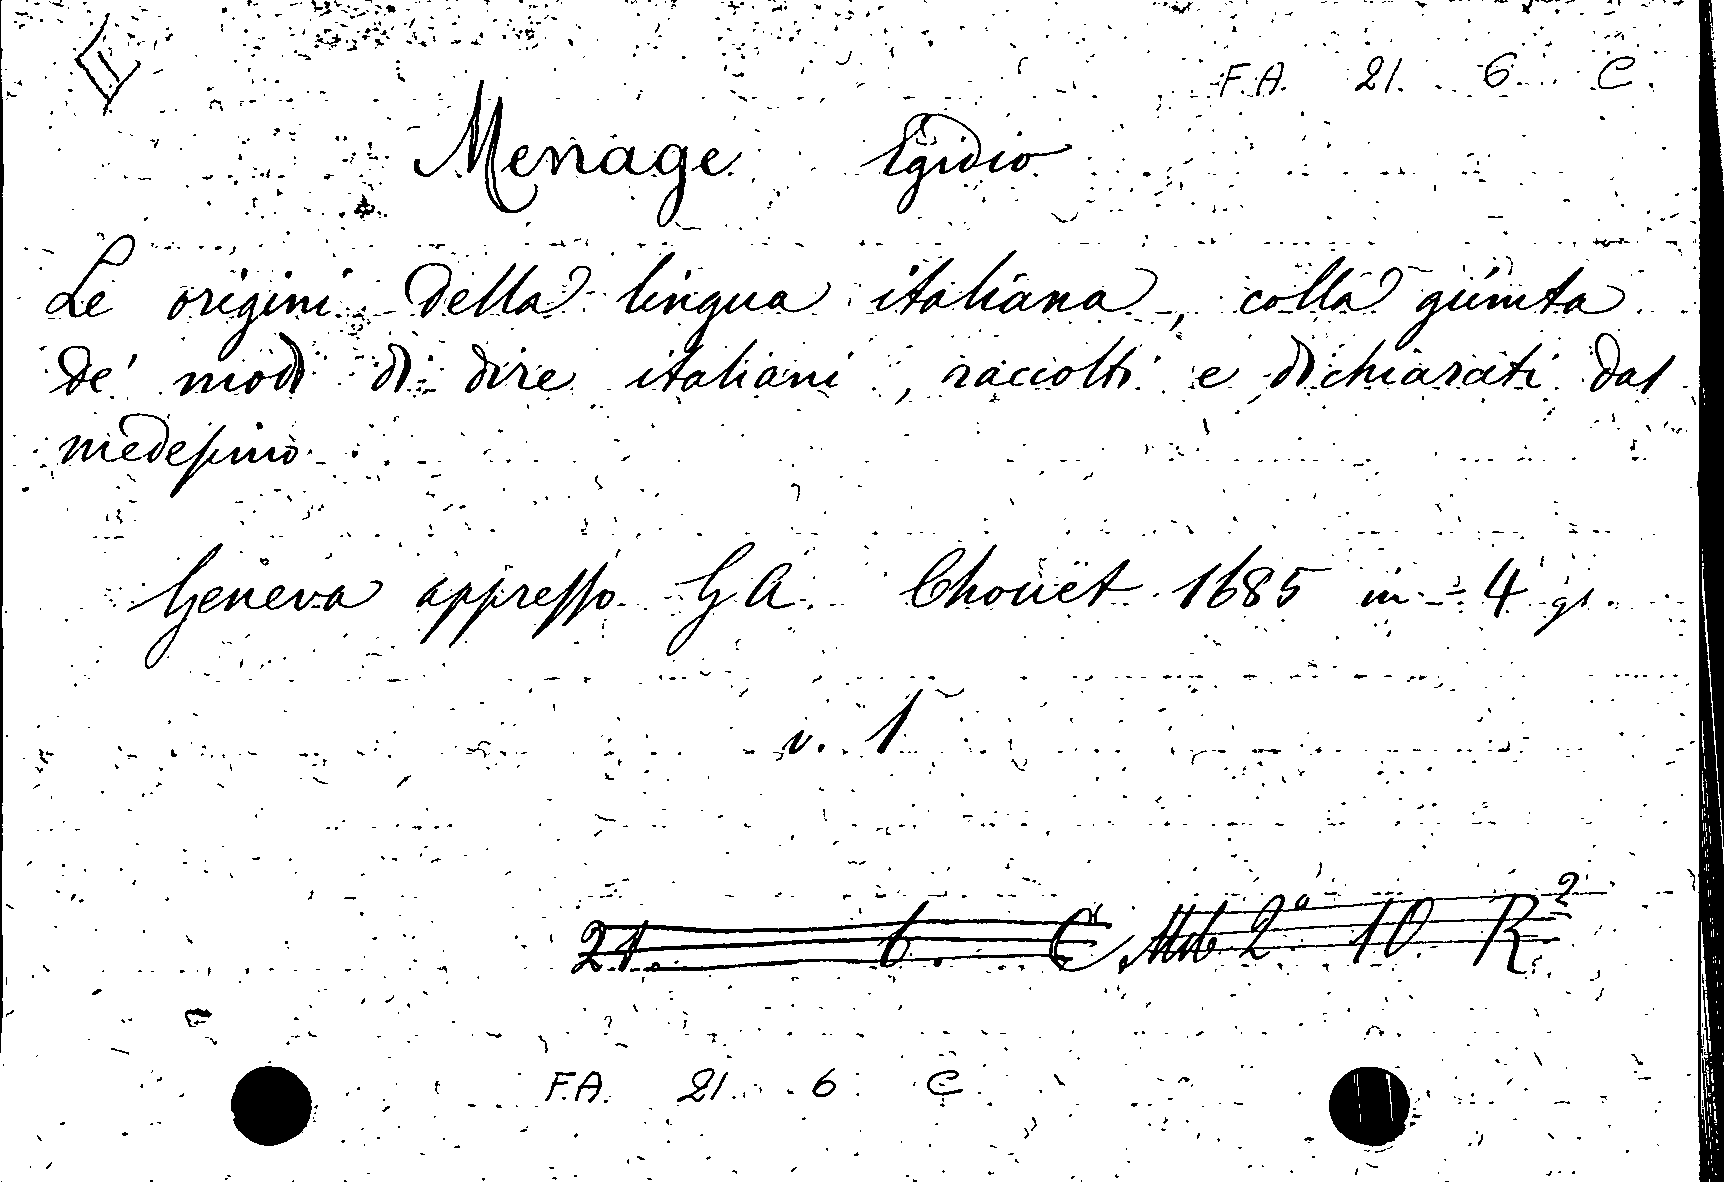 F.A. 21. 6. C.
Menage Egidio
Le origini della lingua italiana, colla giunta
de' modi di dire italiani, raccolti e dichiarati dal
medesimo.
Geneva appresso G A. Chouët 1685 in-4 gr.
v. 1
21. 6. C 2ª 10 R²
F.A. 21. 6 C.